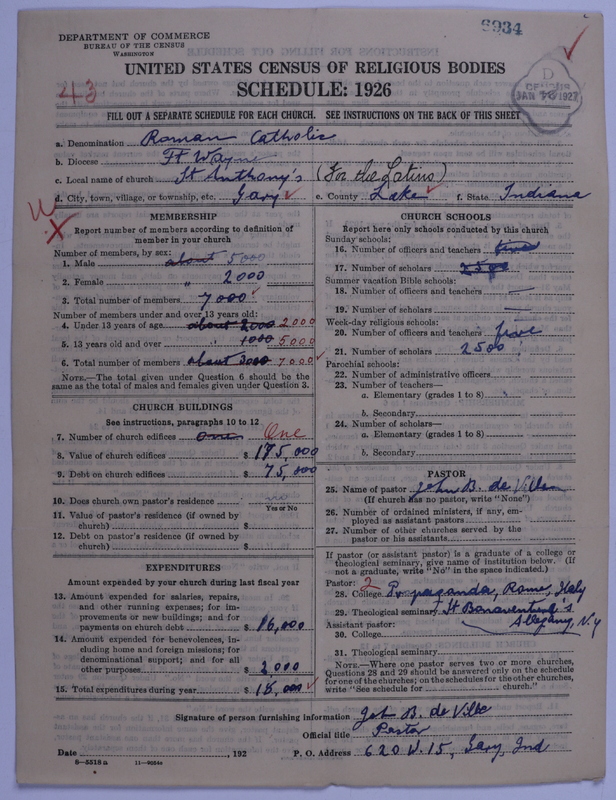 6934
DEPARTMENT OF COMMERCE
BUREAU OF THE CENSUS
WASHINGTON
UNITED STATES CENSUS OF RELIGIOUS BODIES
SCHEDULE: 1926
43
D
CENSUS
JAN 18 1927
FILL OUT A SEPARATE SCHEDULE FOR EACH CHURCH. SEE INSTRUCTIONS ON THE BACK OF THIS SHEET
a. Denomination Roman Catholic
b. Diocese Ft Wayne
c. Local name of church St Anthony's (For the Latins)
d. City, town, village, or township, etc. Gary e. County Lake f. State Indiana
MEMBERSHIP
Report number of members according to definition of
member in your church
Number of members, by sex:
1. Male about 5000
2. Female " 2000
3. Total number of members 7000
Number of members under and over 13 years old:
4. Under 13 years of age about 2000 2000
5. 13 years old and over " 1000 5000
6. Total number of members about 3000 7000
NOTE.—The total given under Question 6 should be the
same as the total of males and females given under Question 3.
CHURCH BUILDINGS
See instructions, paragraphs 10 to 12
7. Number of church edifices one One
8. Value of church edifices $ 175,000
9. Debt on church edifices $ 75,000
10. Does church own pastor's residence no
Yes or No
11. Value of pastor's residence (if owned by
church) $
12. Debt on pastor's residence (if owned by
church) $
EXPENDITURES
Amount expended by your church during last fiscal year
13. Amount expended for salaries, repairs,
and other running expenses; for im-
provements or new buildings; and for
payments on church debt $ 16,000
14. Amount expended for benevolences, in-
cluding home and foreign missions; for
denominational support; and for all
other purposes $ 2000
15. Total expenditures during year $ 18,000
CHURCH SCHOOLS
Report here only schools conducted by this church
Sunday schools:
16. Number of officers and teachers five
17. Number of scholars 2500
Summer vacation Bible schools:
18. Number of officers and teachers —
19. Number of scholars —
Week-day religious schools:
20. Number of officers and teachers five
21. Number of scholars 2500
Parochial schools:
22. Number of administrative officers
23. Number of teachers—
a. Elementary (grades 1 to 8)
b. Secondary
24. Number of scholars—
a. Elementary (grades 1 to 8)
b. Secondary
PASTOR
25. Name of pastor John B. de Ville
(If church has no pastor, write "None")
26. Number of ordained ministers, if any, em-
ployed as assistant pastors
27. Number of other churches served by the
pastor or his assistants
If pastor (or assistant pastor) is a graduate of a college or
theological seminary, give name of institution below. (If
not a graduate, write "No" in the space indicated.)
Pastor: 2
28. College Propaganda, Rome, Italy
29. Theological seminary St Bonaventure's
Assistant pastor: Allegany, N.Y
30. College
31. Theological seminary
NOTE.—Where one pastor serves two or more churches,
Questions 28 and 29 should be answered only on the schedule
for one of the churches; on the schedules for the other churches,
write "See schedule for church."
Signature of person furnishing information John B. de Ville
Official title Pastor
Date , 192 P. O. Address 620 W. 15, Gary, Ind
8—5518 a 11—9054a